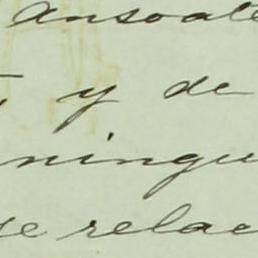 Ansoate
y de
ningu
se relac